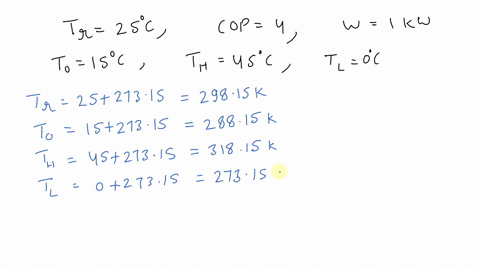 Tr = 25°C, COP = 4, W = 1 KW
To = 15°C, TH = 45°C, TL = 0°C
Tr = 25+273.15 = 298.15 K
To = 15+273.15 = 288.15 K
TH = 45+273.15 = 318.15 K
TL = 0+273.15 = 273.15